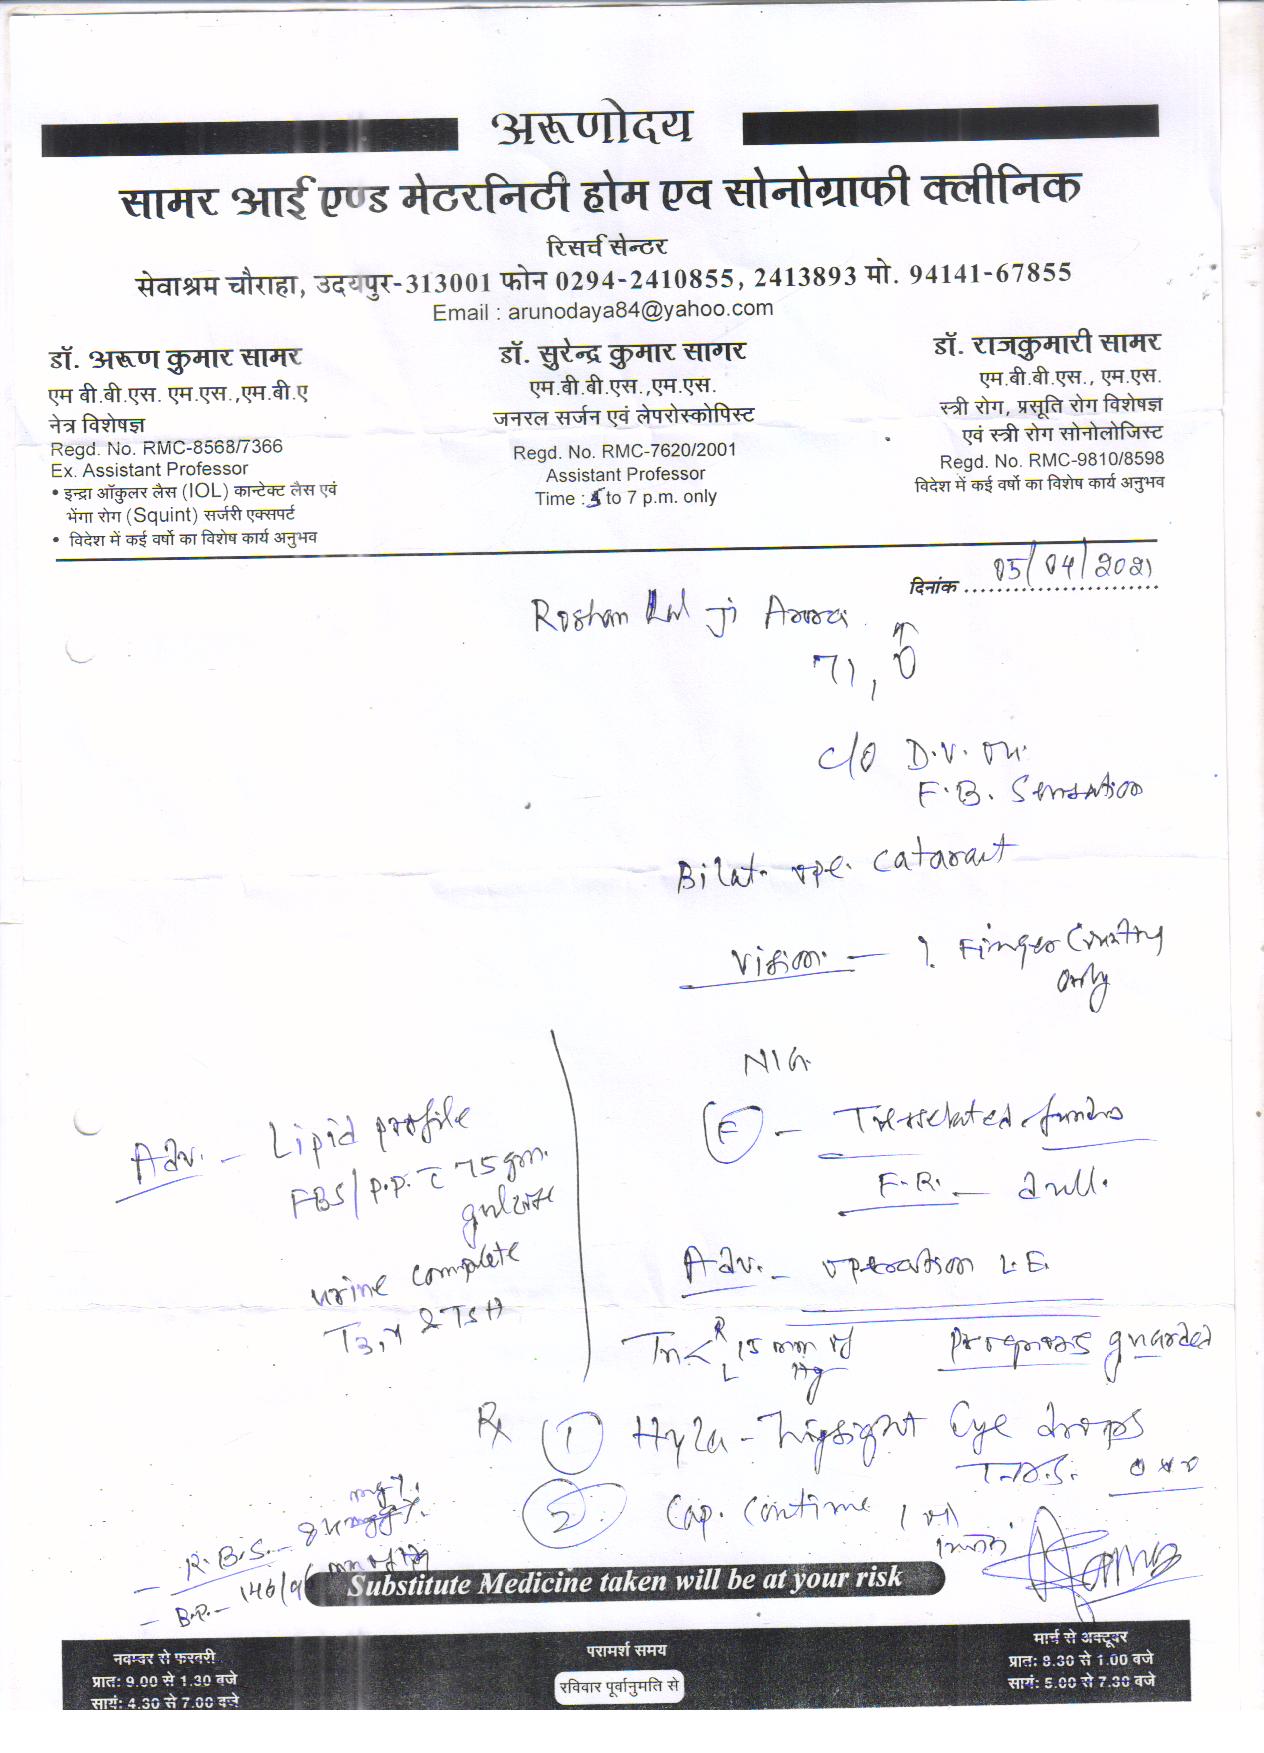 अरूणोदय
सामर आई एण्ड मेटरनिटी होम एव सोनोग्राफी क्लीनिक
रिसर्च सेन्टर
सेवाश्रम चौराहा, उदयपुर-313001 फोन 0294-2410855, 2413893 मो. 94141-67855
Email : arunodaya84@yahoo.com
डॉ. अरूण कुमार सामर
एम बी.बी.एस. एम.एस.,एम.बी.ए
नेत्र विशेषज्ञ
Regd. No. RMC-8568/7366
Ex. Assistant Professor
• इन्द्रा ऑकुलर लैस (IOL) कान्टेक्ट लैस एवं
भेंगा रोग (Squint) सर्जरी एक्सपर्ट
• विदेश में कई वर्षो का विशेष कार्य अनुभव
डॉ. सुरेन्द्र कुमार सागर
एम.बी.बी.एस.,एम.एस.
जनरल सर्जन एवं लेपरोस्कोपिस्ट
Regd. No. RMC-7620/2001
Assistant Professor
Time : 5 to 7 p.m. only
डॉ. राजकुमारी सामर
एम.बी.बी.एस., एम.एस.
स्त्री रोग, प्रसूति रोग विशेषज्ञ
एवं स्त्री रोग सोनोलोजिस्ट
Regd. No. RMC-9810/8598
विदेश में कई वर्षो का विशेष कार्य अनुभव
दिनांक 05/04/2021
Roshan Lal ji Arora
71,
c/o D.V. on.
F.B. Sensation
Bilat. ope. cataract
Vision. — Finger Counting
only
(F) — Tesselated fundus
F.R. — dull.
Adv. — operation L.E.
Tn < R L 15 mm of Hg
Prognosis guarded
Adv. — Lipid profile
FBS/P.P. c 75 gm.
glucose
urine complete
T3, 4 & TSH
Rx (1) Hyla-Highsight Eye drops
T.D.S.
(2) Cap. Contime 1
— R.B.S. — mg%.
— B.P. — 146/9 mm of Hg
Substitute Medicine taken will be at your risk
नवम्वर से फरवरी
प्रात: 9.00 से 1.30 वजे
सायं: 4.30 से 7.00 वजे
परामर्श समय
रविवार पूर्वानुमति से
मार्च से अक्टूवर
प्रात: 8.30 से 1.00 वजे
सायं: 5.00 से 7.30 वजे